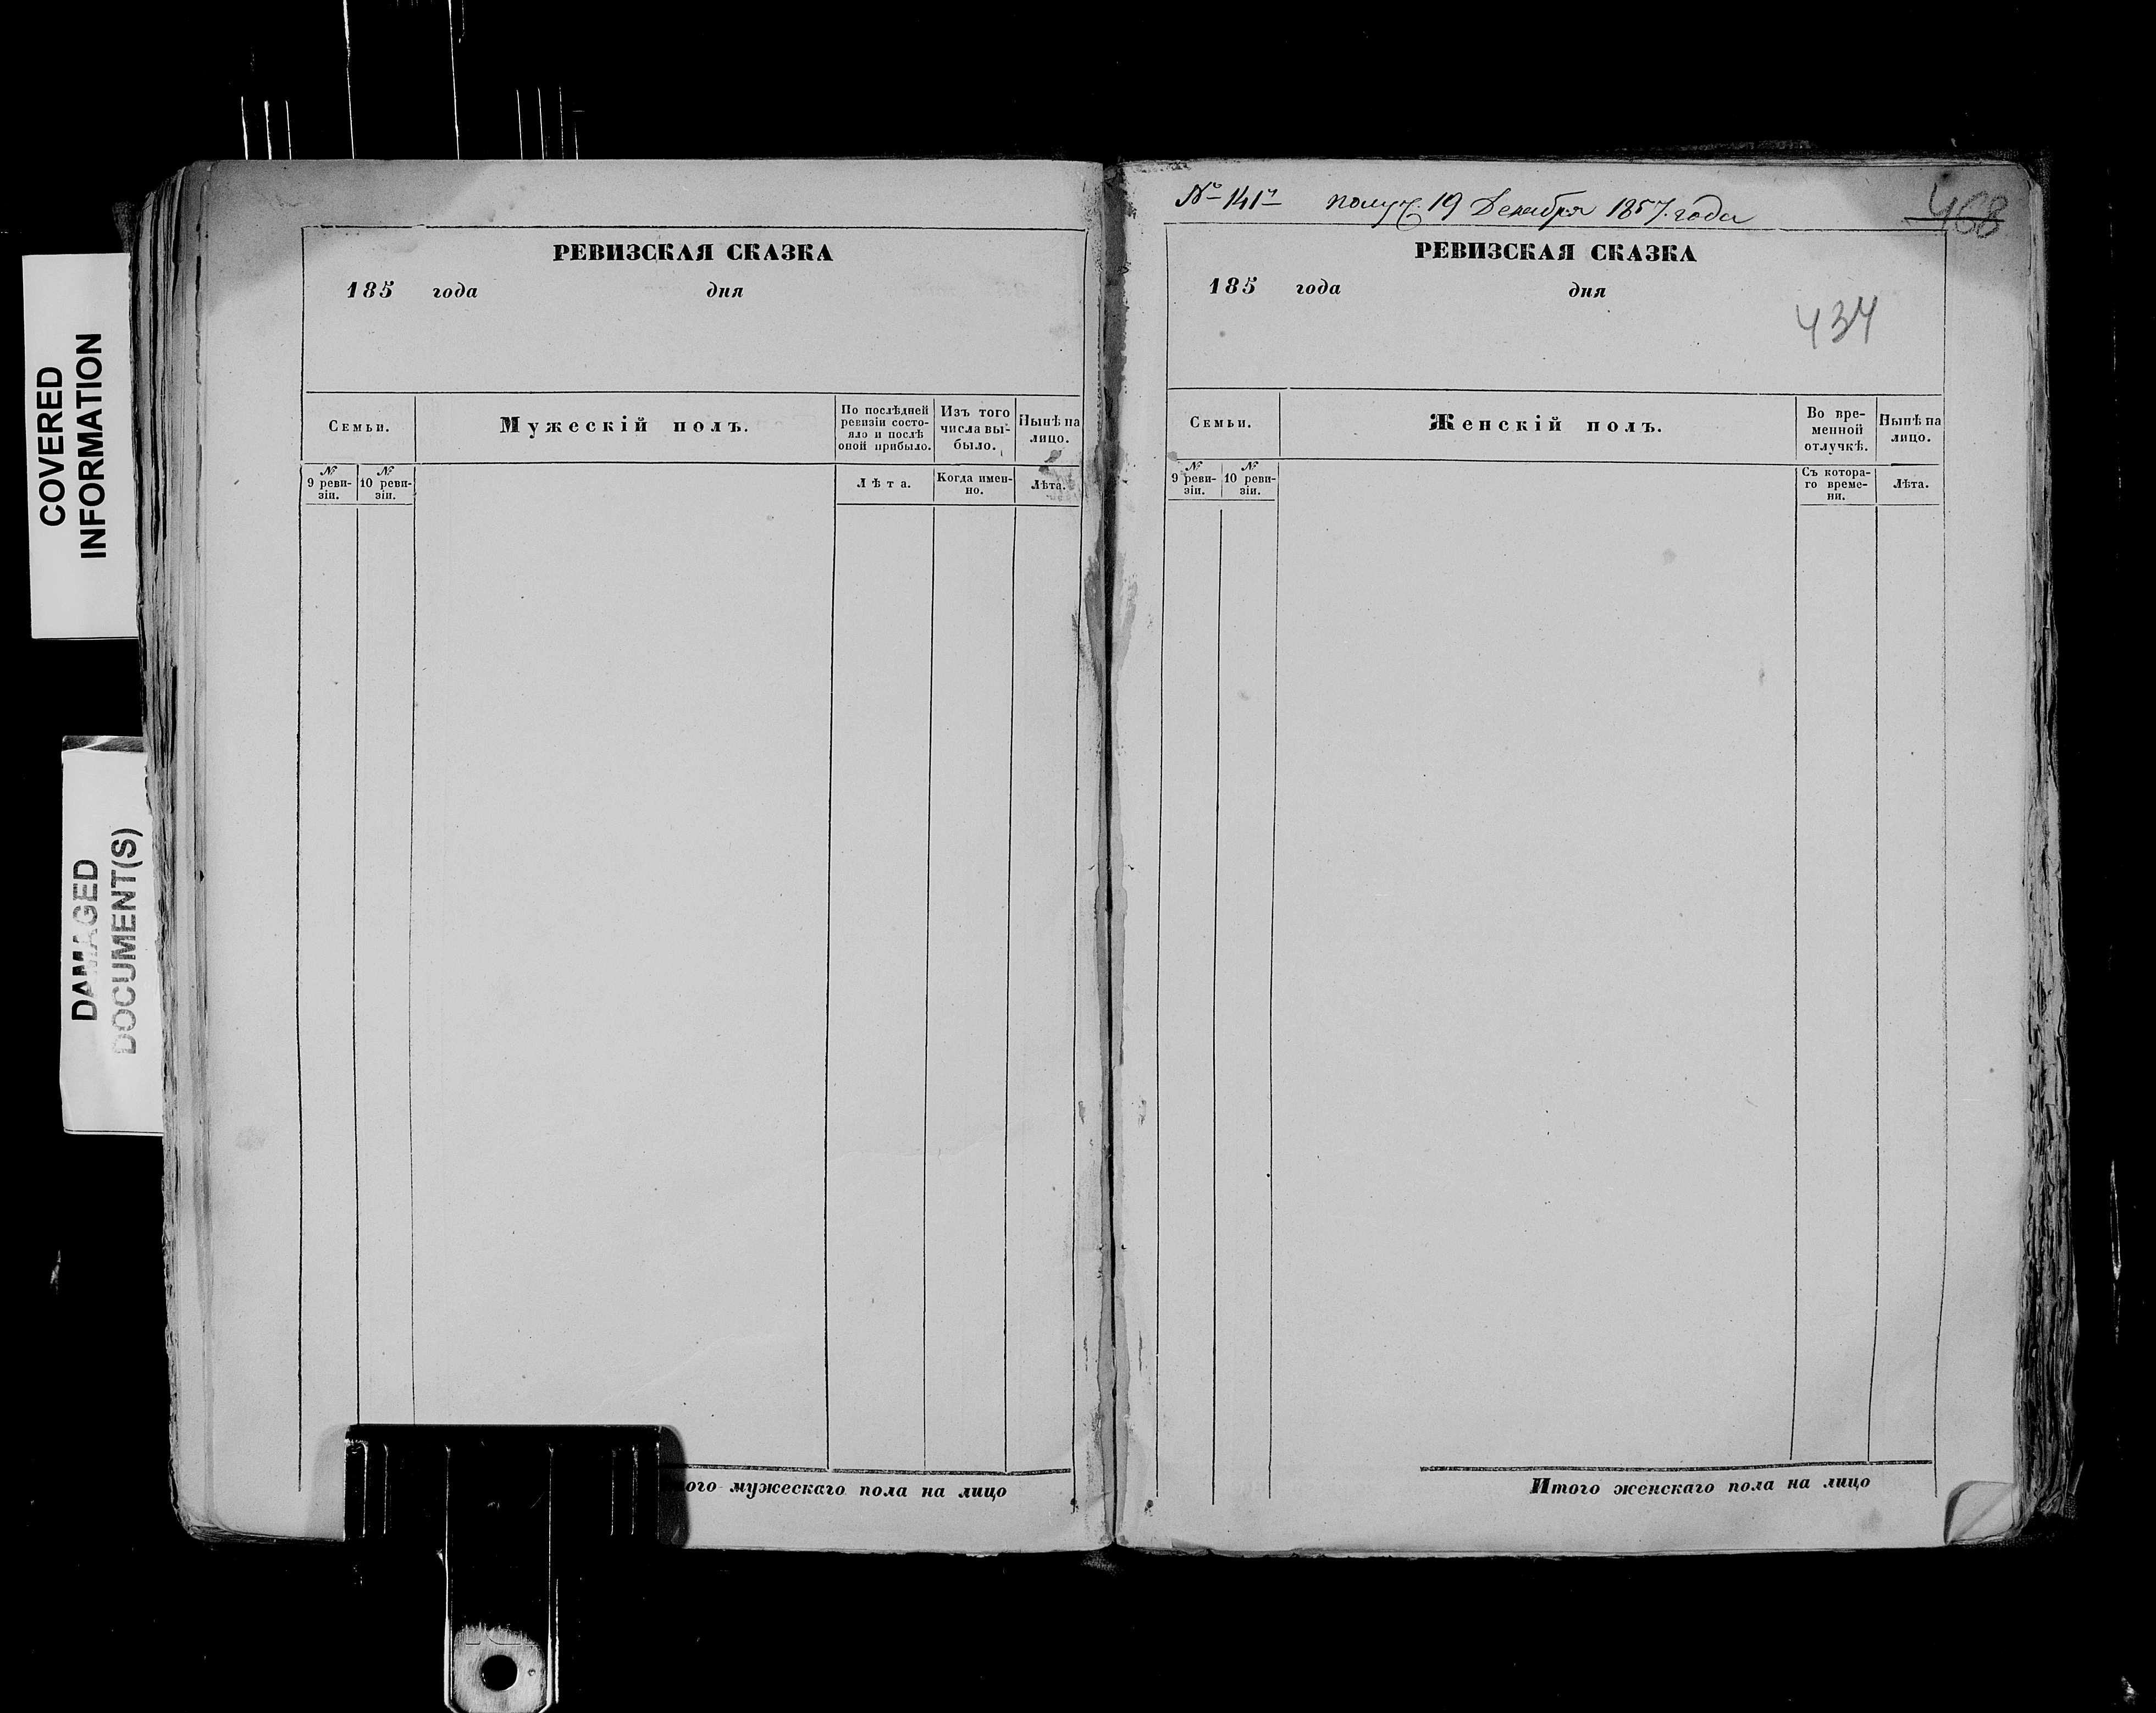 COVERED
INFORMATION
DAMAGED
DOCUMENT(S)
РЕВИЗСКАЯ СКАЗКА
185 года дня
Семьи.
Мужескій полъ.
По послѣдней
ревизіи состо-
яло и послѣ
оной прибыло.
Изъ того
числа вы-
было.
Нынѣ на
лицо.
№
9 реви-
зіи.
№
10 реви-
зіи.
Лѣта.
Когда имен-
но.
Лѣта.
ого мужескаго пола на лицо
№ 141й получ. 19 Декабря 1857. года
468
РЕВИЗСКАЯ СКАЗКА
185 года дня
434
Семьи.
Женскій полъ.
Во вре-
менной
отлучкѣ.
Нынѣ на
лицо.
№
9 реви-
зіи.
№
10 реви-
зіи.
Съ котора-
го време-
ни.
Лѣта.
Итого женскаго пола на лицо